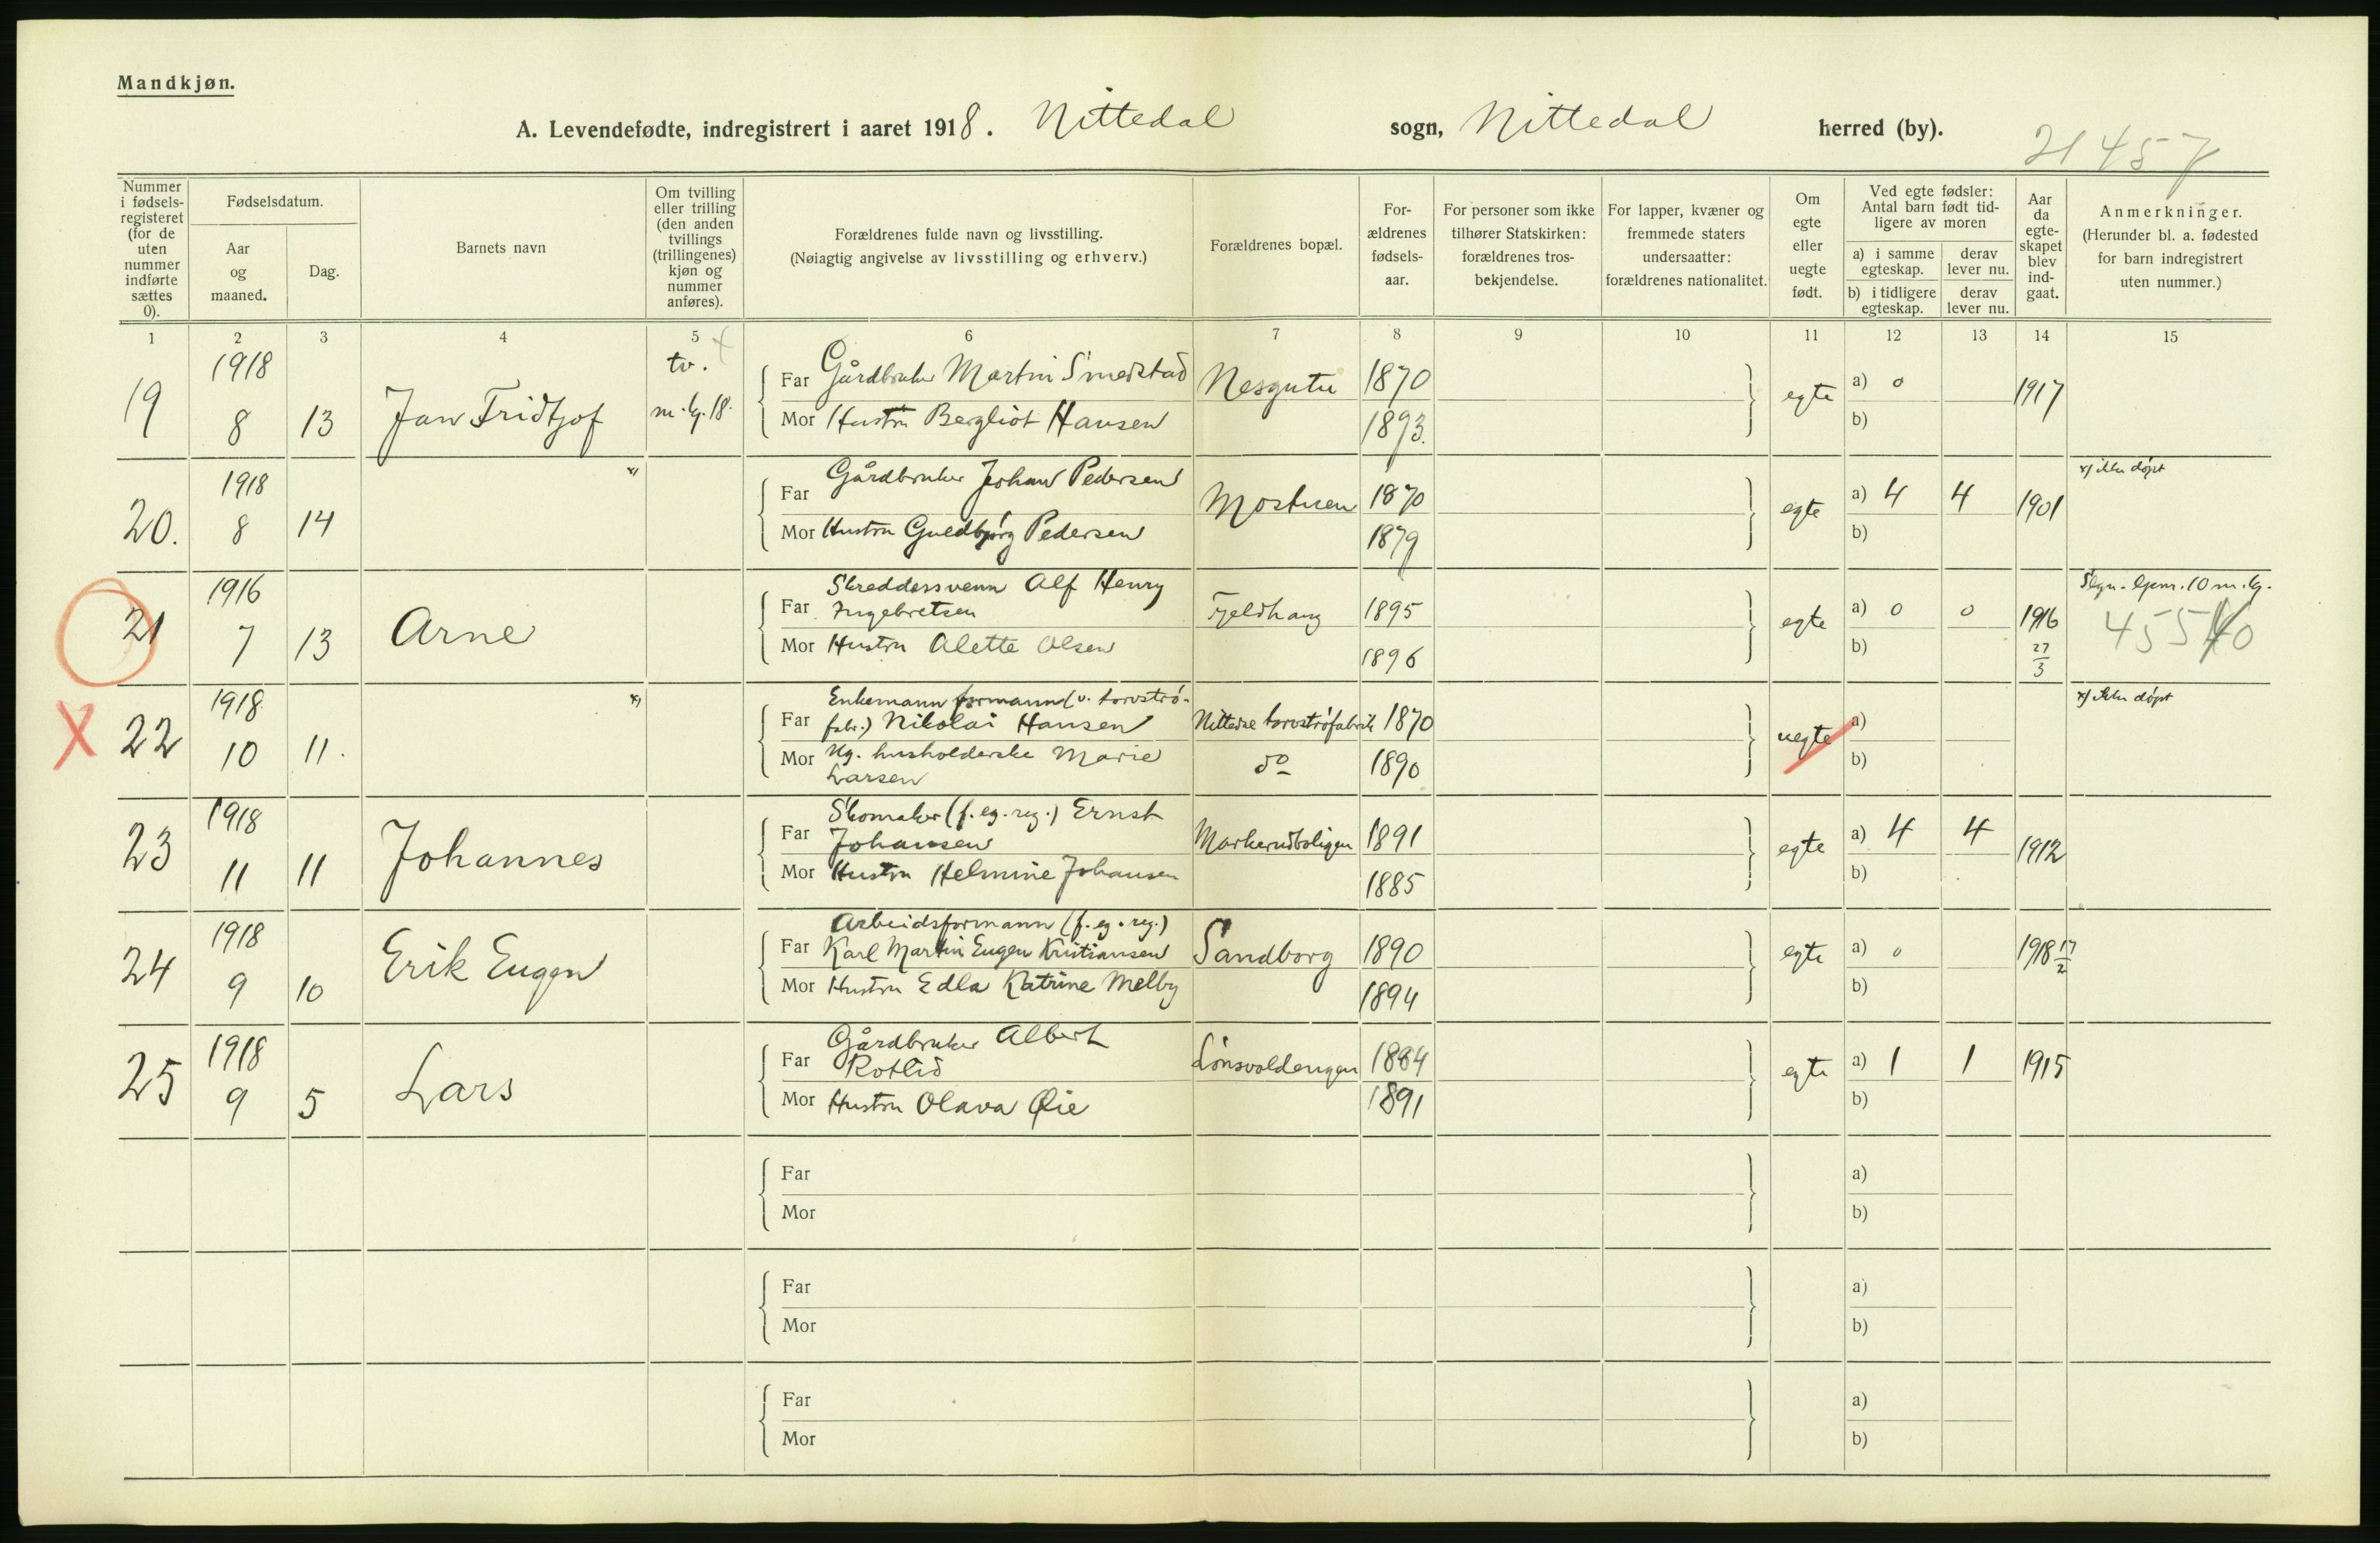 Mandkjøn.
A. Levendefødte, indregistrert i aaret 1918. Nittedal sogn, Nittedal herred (by).
21457
Nummer i fødselsregisteret (for de uten nummer indførte sættes 0).
Fødselsdatum.
Aar og maaned.
Dag.
Barnets navn
Om tvilling eller trilling (den anden tvillings (trillingenes) kjøn og nummer anføres).
Forældrenes fulde navn og livsstilling.
(Nøiagtig angivelse av livsstilling og erhverv.)
Forældrenes bopæl.
For-ældrenes fødsels-aar.
For personer som ikke tilhører Statskirken: forældrenes tros-bekjendelse.
For lapper, kvæner og fremmede staters undersaatter: forældrenes nationalitet.
Om egte eller uegte født.
Ved egte fødsler: Antal barn født tid-ligere av moren
a) i samme egteskap.
derav lever nu.
b) i tidligere egteskap.
derav lever nu.
Aar da egte-skapet blev ind-gaat.
Anmerkninger.
(Herunder bl. a. fødested for barn indregistrert uten nummer.)
1 2 3 4 5 6 7 8 9 10 11 12 13 14 15
19 1918 8 13 Jan Fridtjof tv. m. lg. 18.
Far Gårdbruker Martin Smedstad Nesgutu 1870 egte a) 0 1917
Mor Hustru Bergliot Hansen 1893. b)
20. 1918 8 14 x)
Far Gårdbruker Johan Pedersen Mostuen 1870 egte a) 4 4 1901 x) ikke døpt
Mor Hustru Guldbjørg Pedersen 1879 b)
21 1916 7 13 Arne
Far Skreddersvenn Alf Henry
Ingebretsen Fjeldhaug 1895 egte a) 0 0 1916 27/3
Mor Hustru Alette Olsen 1896 b)
22 1918 10 11. x)
Far Enkemann formann (v. torvstrø-
fabr.) Nikolai Hansen Nittedal torvstrøfabrik 1870 uegte a) x) ikke døpt
Mor Ug. husholderske Marie
Larsen do 1890 b)
23 1918 11 11 Johannes
Far Skomaker (f. eg. reg.) Ernst
Johansen Markerudboligen 1891 egte a) 4 4 1912
Mor Hustru Helmine Johansen 1885 b)
24 1918 9 10 Erik Eugen
Far Arbeidsformann (f. eg. reg.)
Karl Martin Eugen Kristiansen Sandborg 1890 egte a) 0 1918 17/2
Mor Hustru Edla Katrine Melby 1894 b)
25 1918 9 5 Lars
Far Gårdbruker Albert
Rotlid Lønsvoldengen 1884 egte a) 1 1 1915
Mor Hustru Olava Øie 1891 b)
Far a)
Mor b)
Far a)
Mor b)
Far a)
Mor b)